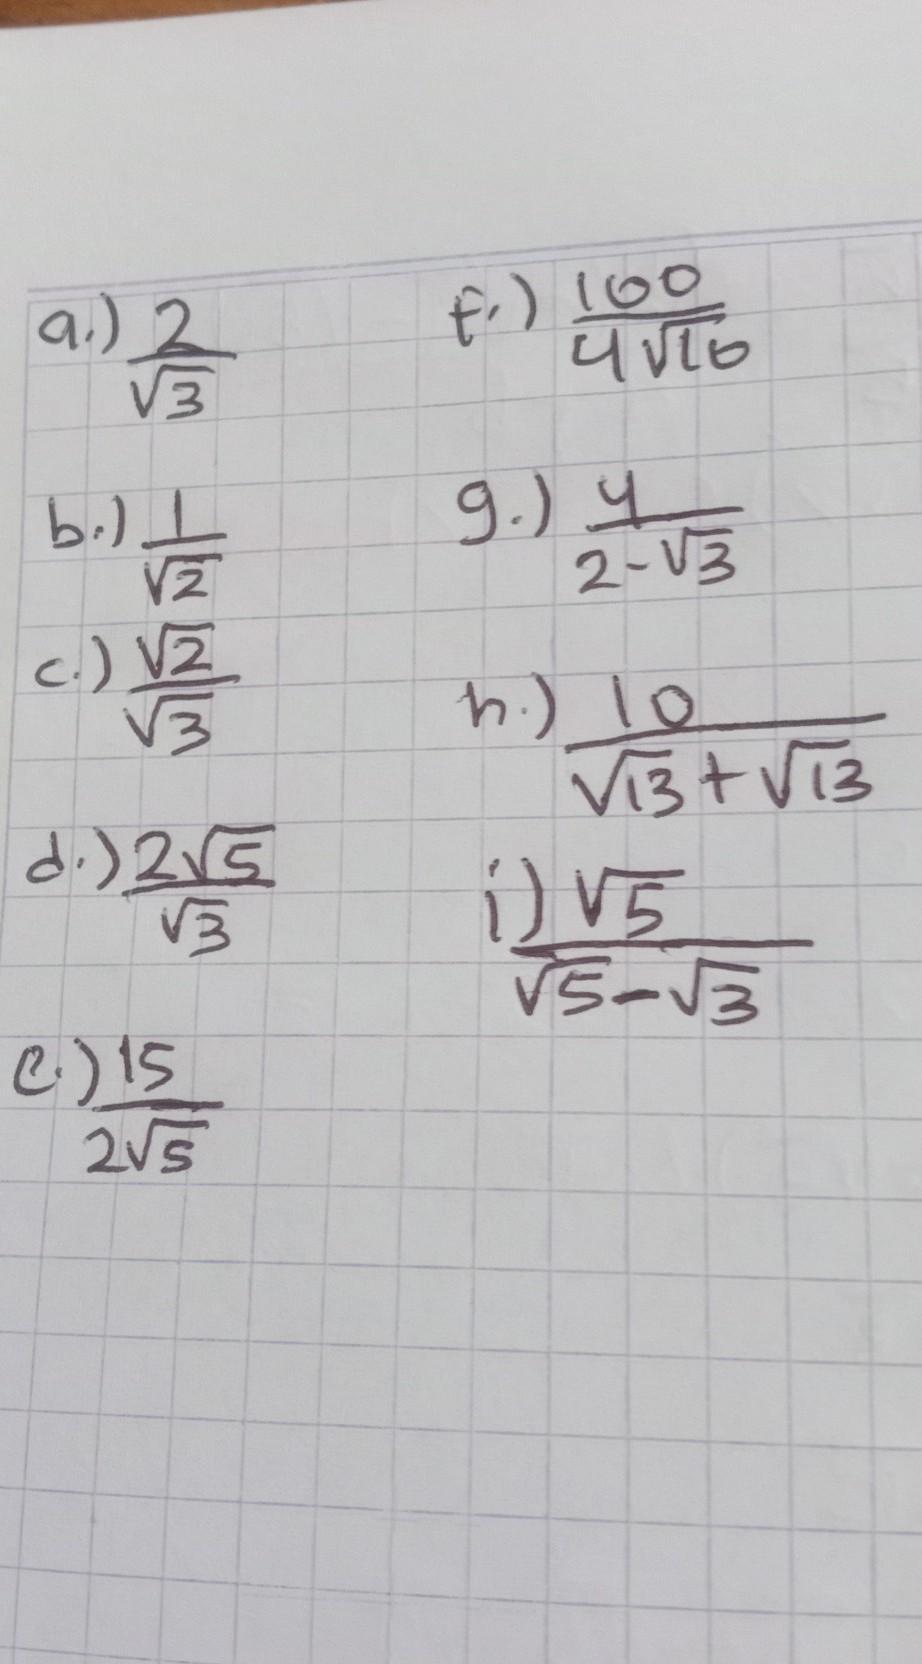 a.) 2/√3
b.) 1/√2
c.) √2/√3
d.) 2√5/√3
e.) 15/2√5
f.) 100/4√10
g.) 4/2-√3
h.) 10/√13+√13
i) √5/√5-√3